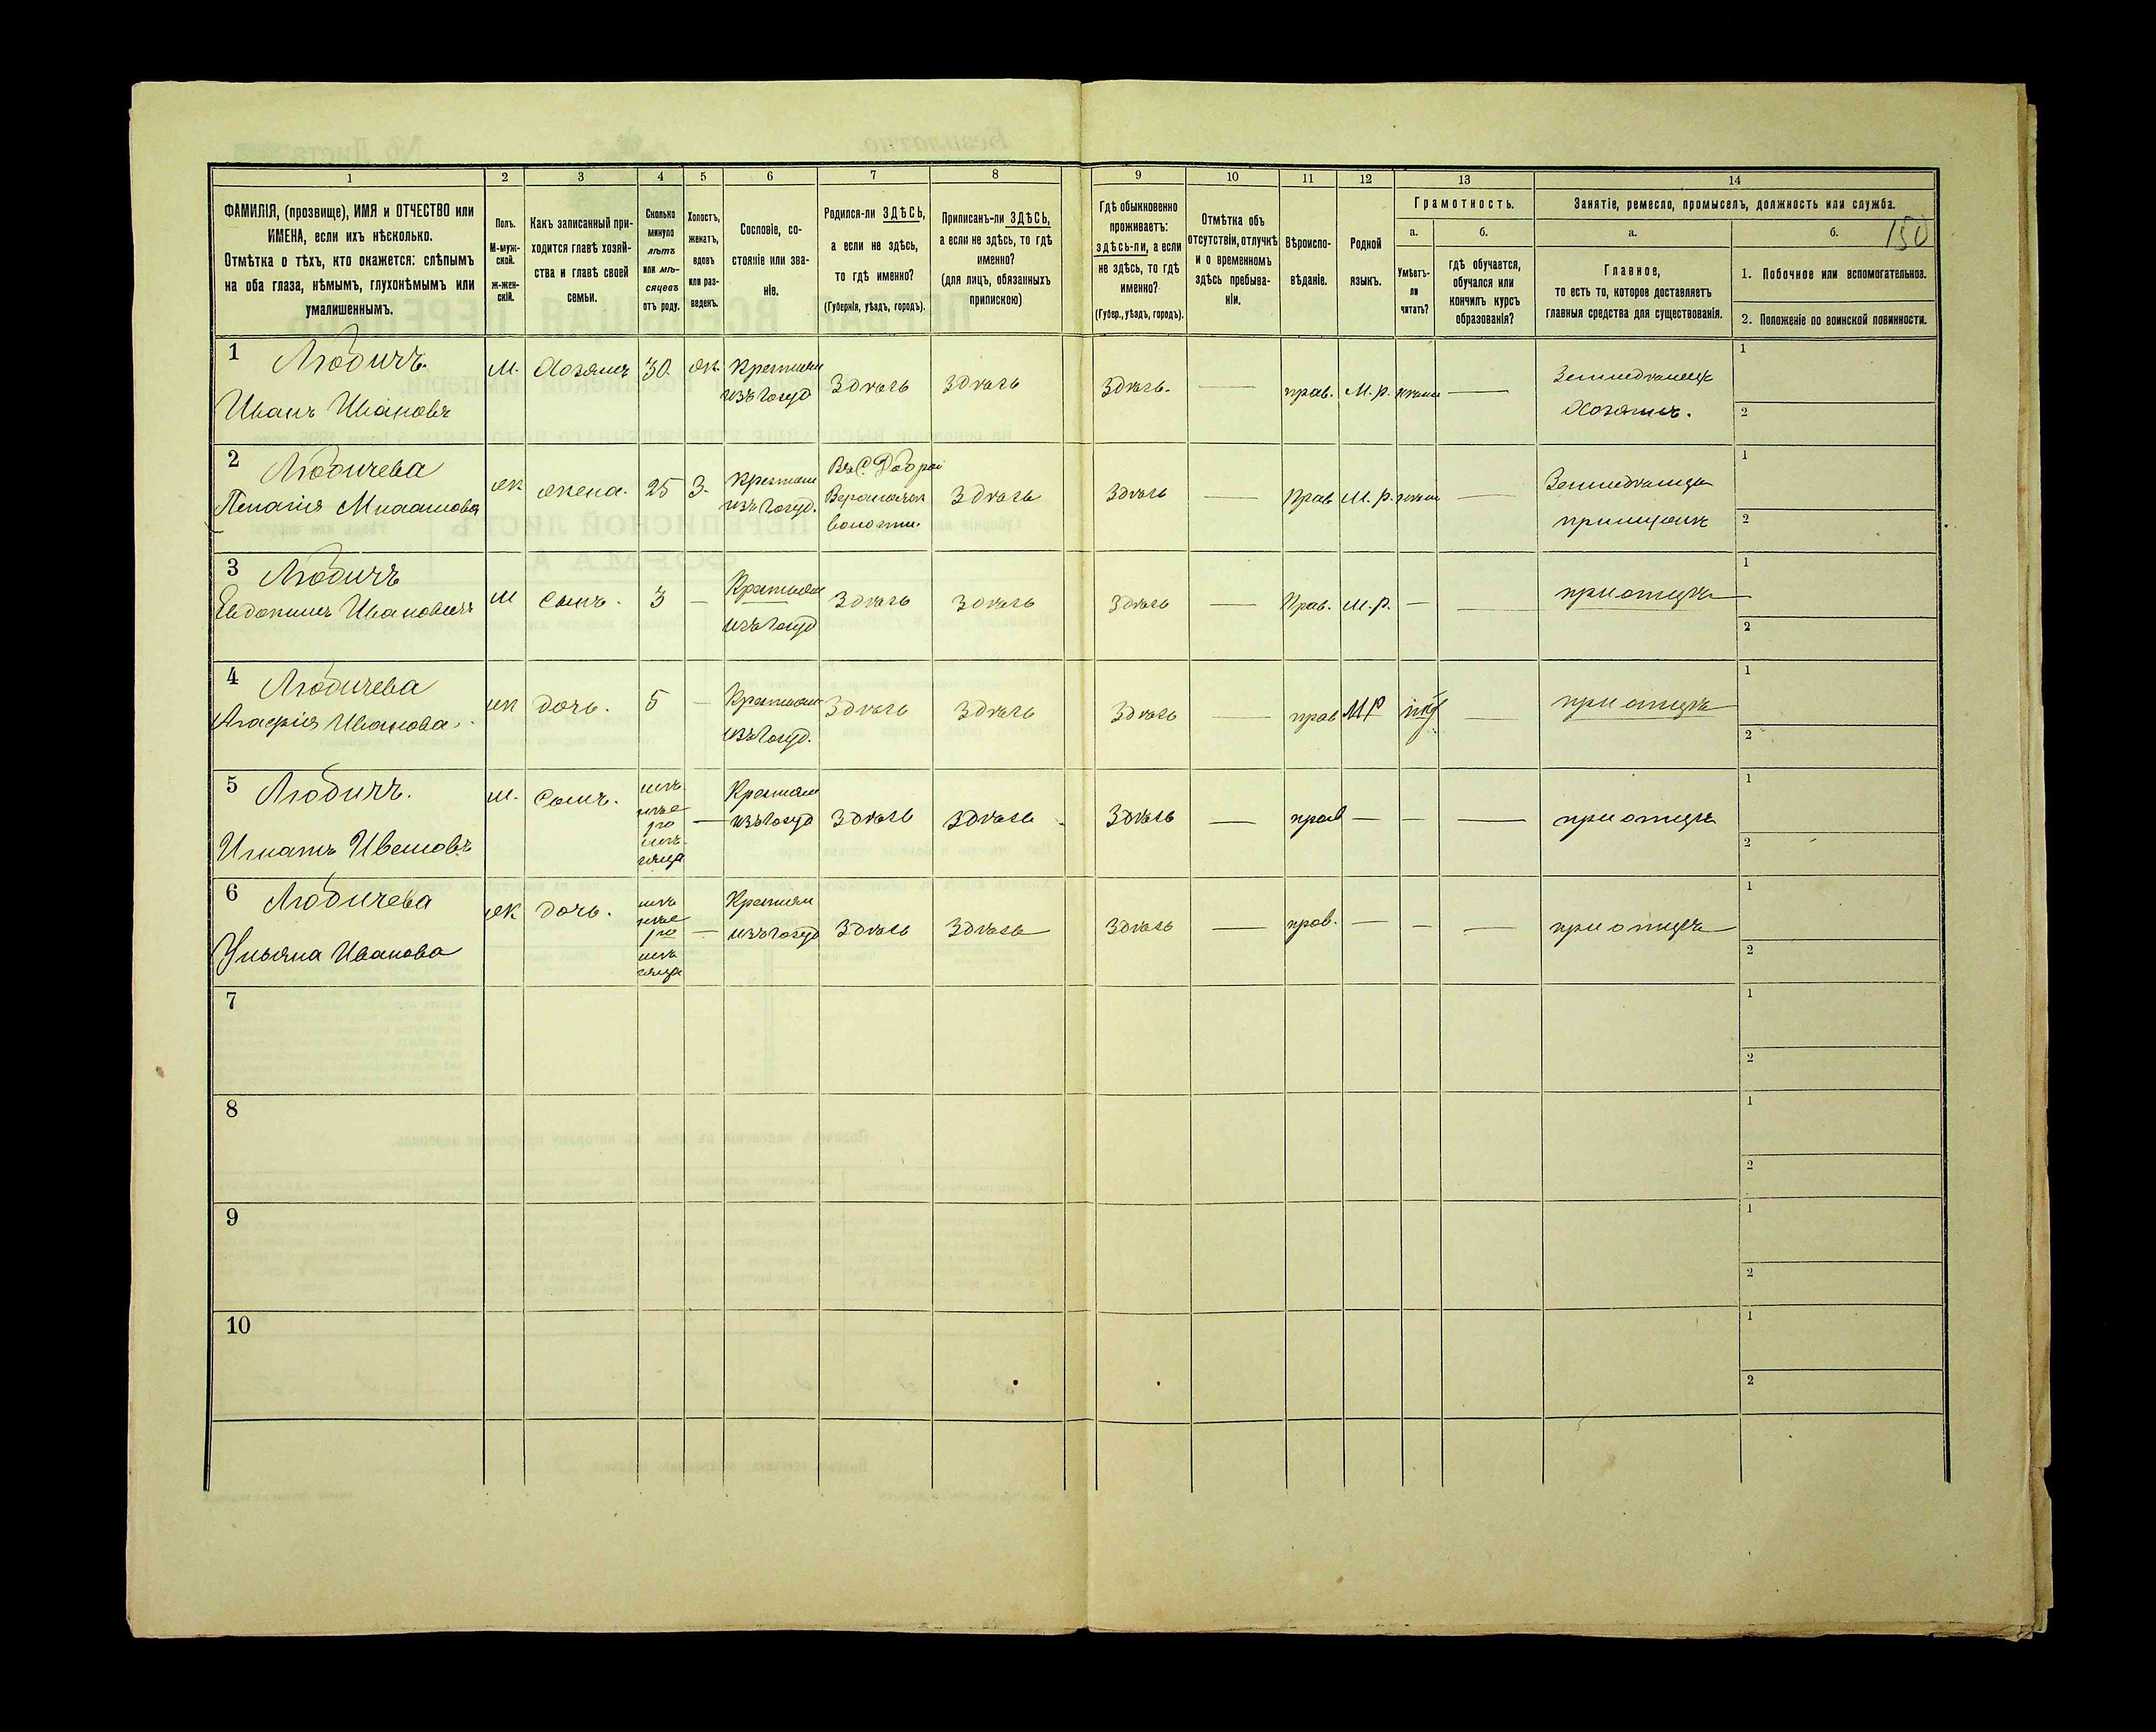 150
1 2 3 4 5 6 7 8 9 10 11 12 13 14
ФАМИЛІЯ, (прозвище), ИМЯ и ОТЧЕСТВО или
ИМЕНА, если ихъ нѣсколько.
Отмѣтка о тѣхъ, кто окажется: слѣпымъ
на оба глаза, нѣмымъ, глухонѣмымъ или
умалишеннымъ.
Полъ.
М-муж-
ской.
Ж-жен-
скій.
Какъ записанный при-
ходится главѣ хозяй-
ства и главѣ своей
семьи.
Сколько
минуло
лѣтъ
или мѣ-
сяцевъ
отъ роду.
Холостъ,
женатъ,
вдовъ
или раз-
веденъ.
Сословіе, со-
стояніе или зва-
ніе.
Родился-ли ЗДѢСЬ,
а если не здѣсь,
то гдѣ именно?
(Губернія, уѣздъ, городъ).
Приписанъ-ли ЗДѢСЬ,
а если не здѣсь, то гдѣ
именно?
(для лицъ, обязанныхъ
припискою)
Гдѣ обыкновенно
проживаетъ:
здѣсь-ли, а если
не здѣсь, то гдѣ
именно?
(Губер., уѣздъ, городъ).
Отмѣтка объ
отсутствіи, отлучкѣ
и о временномъ
здѣсь пребыва-
ніи.
Вѣроиспо-
вѣданіе.
Родной
языкъ.
Грамотность.
а.
Умѣетъ-
ли
читать?
б.
гдѣ обучается,
обучался или
кончилъ курсъ
образованія?
Занятіе, ремесло, промыселъ, должность или служба.
а.
Главное,
то есть то, которое доставляетъ
главныя средства для существованія.
б.
1. Побочное или вспомогательное.
2. Положеніе по воинской повинности.
1 Любичъ. М. Хозяинъ 30 ж. 1
Иванъ Ивановъ изъ госуд здѣсь здѣсь здѣсь. — прав. М. р. — Хозяинъ. 2
2 Любичева ж жена. 25 З. 1
изъ госуд. волости. здѣсь здѣсь — Прав М. р. — 2
3 Любичъ М сынъ. 3 — 1
Евдокимъ Ивановичъ изъ госуд здѣсь здѣсь здѣсь — Прав. М. р. — — при отцѣ 2
4 Любичева ж дочь. 5 — 1
Агафія Иванова. изъ госуд. здѣсь здѣсь здѣсь — прав М Р — при отцѣ 2
5 Любичъ. М. сынъ. — 1
Игнатъ изъ госуд здѣсь здѣсь здѣсь — прав — — — при отцѣ 2
6 Любичева ж дочь. — 1
Ульяна Иванова изъ госуд здѣсь здѣсь здѣсь — прав. — — — при отцѣ 2
7 1
2
8 1
2
9 1
2
10 1
2